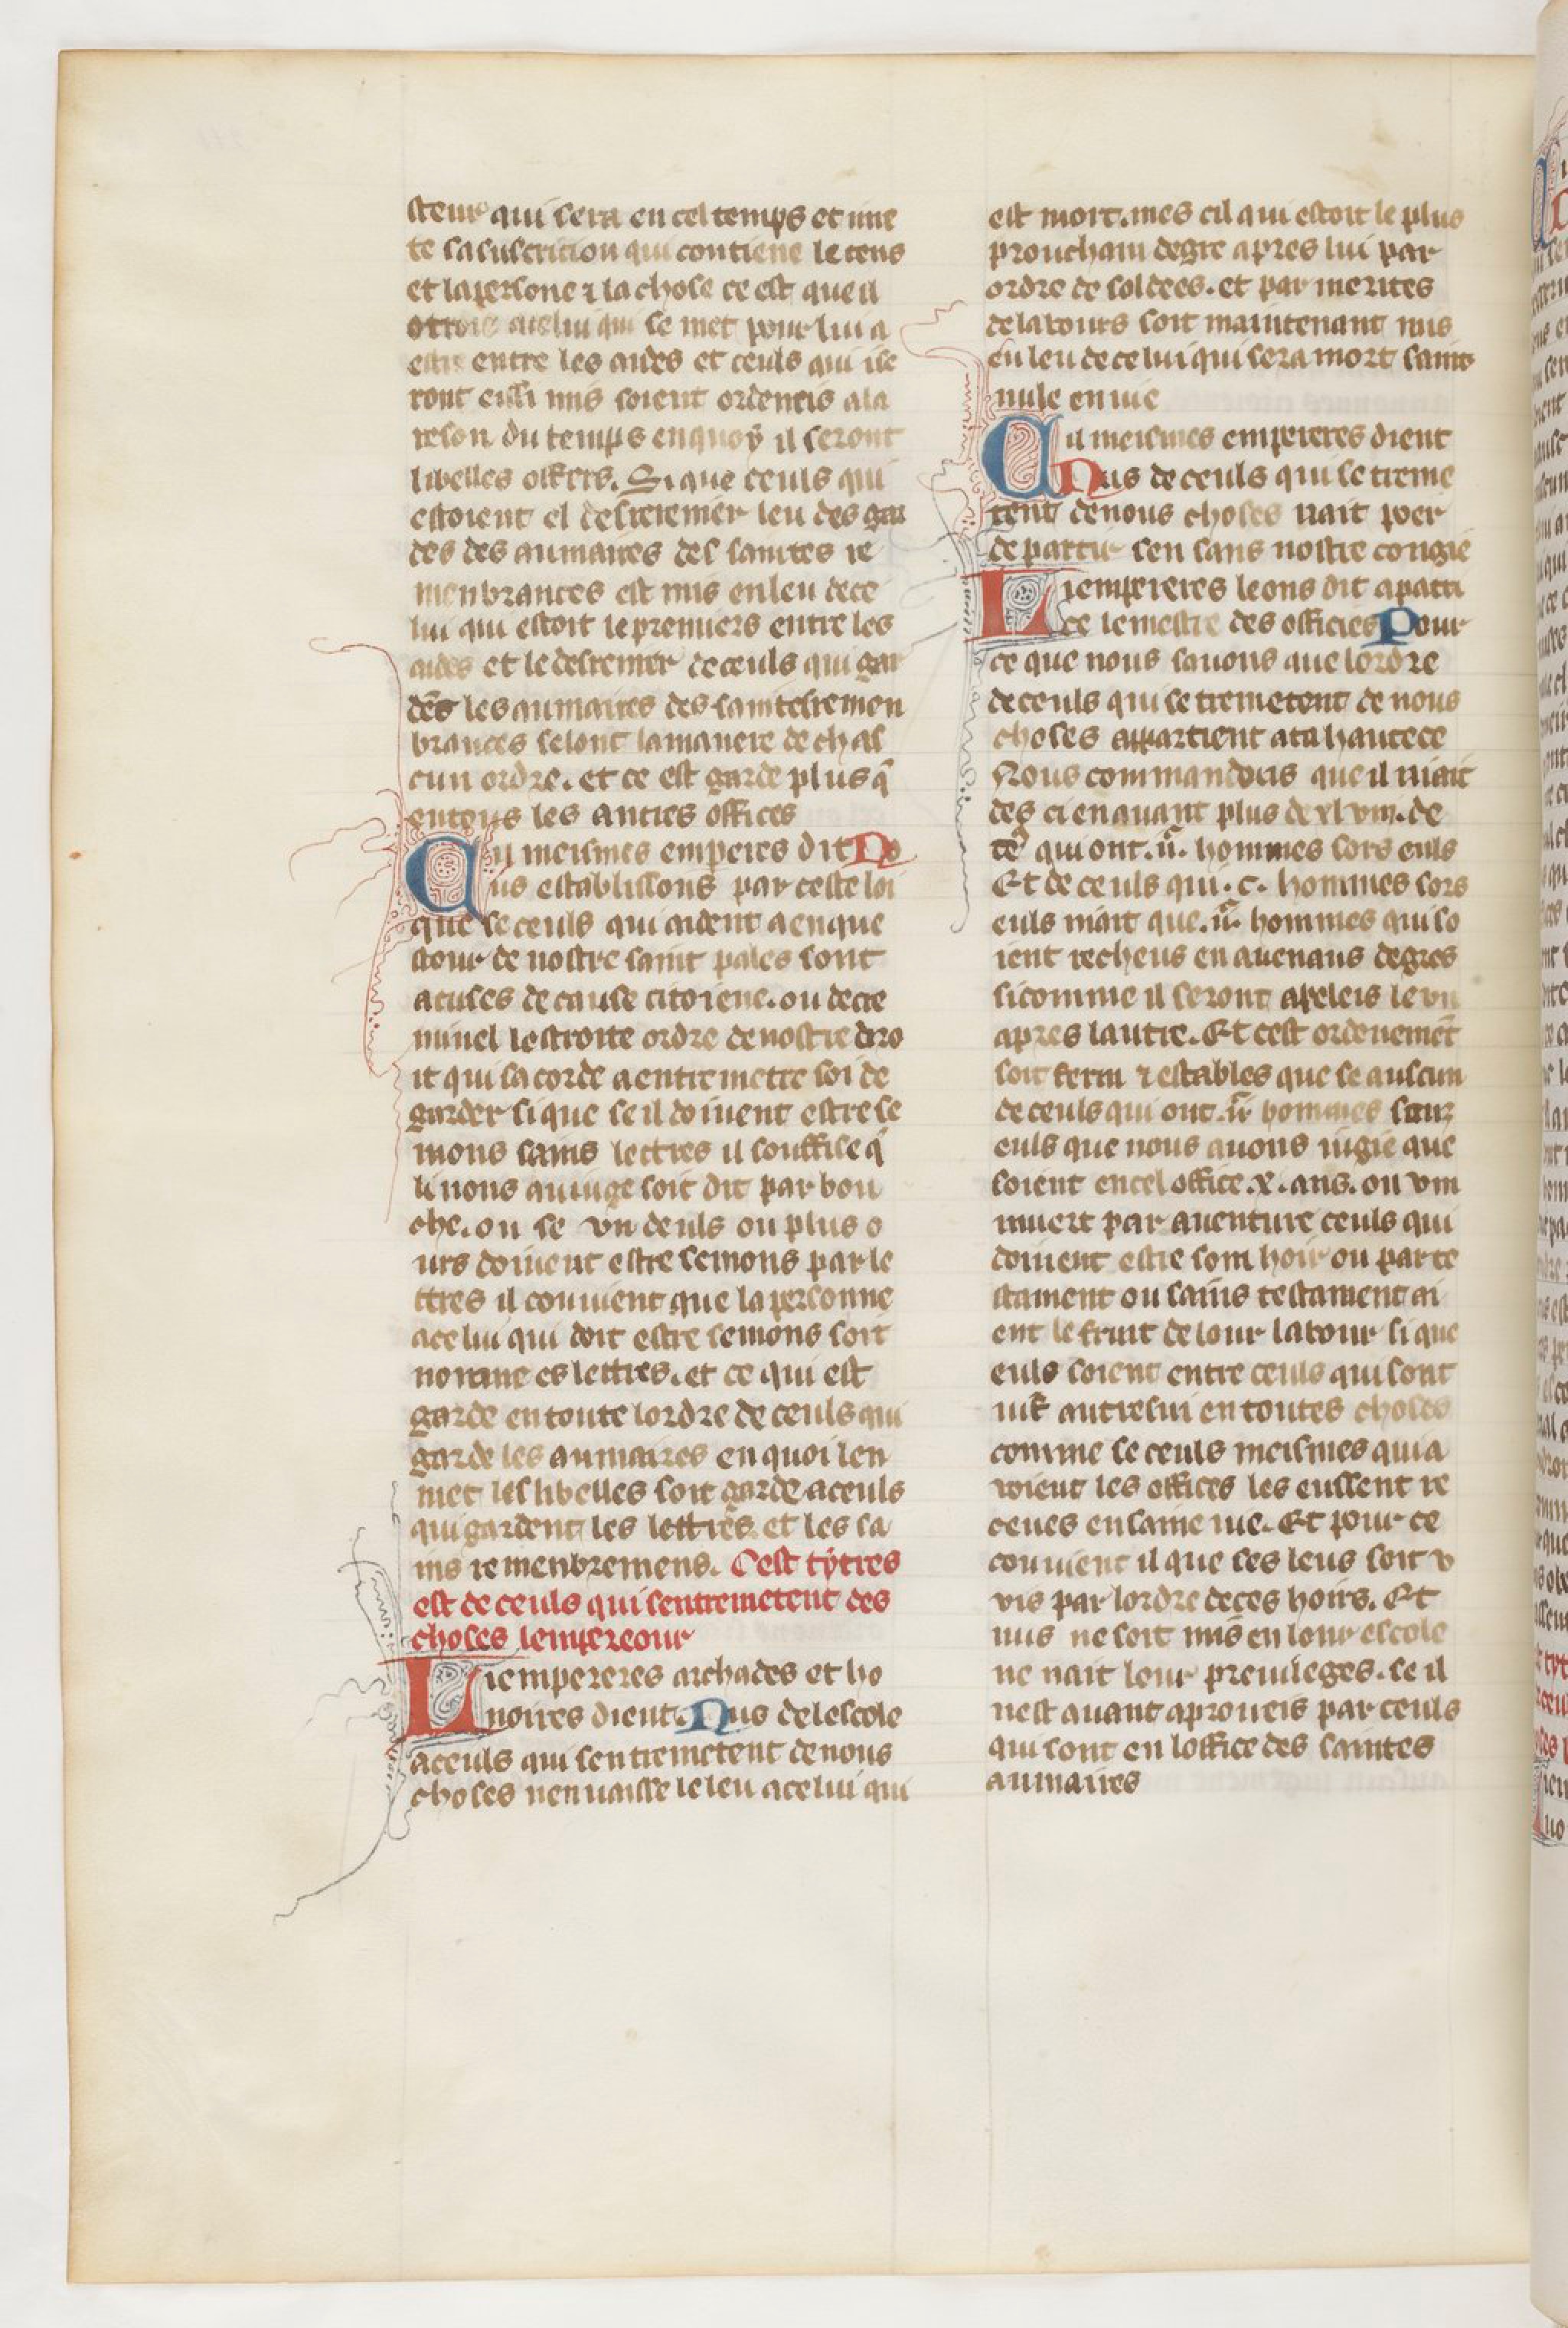 steur qui sera en cel temps et me
te sa suscricion qui contiene le tens
et la persone ⁊ la chose ce est que il
otroie a celui qui se met pour lui a
estre entre les aides et ceuls qui ise
ront eissi mis soient ordeneis a la
reson du temps en quoÿ il seront
libelles offers. Si que ceuls qui
estoient el desrerenier leu des gar
des des aumaires des saintes re
menbrances est mis en leu de ce
lui qui estoit le premiers entre les
aides et le desrenier de ceuls qui gar
des les aumaires des saintes remen
brances selont la maniere de chas
cun ordre. et ce est garde plus q̄
en tous les autres offices
Cil meismes emperes dit No
us establissons par ceste loi
que se ceuls qui aident a enque
stour de nostre saint pales sont
acuses de cause citoiene. ou de cre
minel lestroite ordre de nostre dro
it qui sacorde a entremette soi de
garder si que se il doiuent estre se
mons sains lettres il souffise q̄
li nons au iuge soit dit par bou
che. ou se vn deuls ou plus o
urs doiuent estre semons par le
ttres il conuient que la personne
a celui qui doit estre semons soit
nomme es lettres. et ce qui est
garde en toute lordre de ceuls qui
garde les aumaires en quoi len
met les libelles soit garde a ceuls
qui gardent les lettres et les sa
ins remenbremens. Cest tÿtres
est de ceuls qui sentremetent des
choses lempereour
Li empereres archades et ho
noires dient. Nus de lescole
a ceuls qui sentremetent de nous
choses nen uaisse le leu a celui qui
est mort. mes cil qui estoit le plus
prouchain degre apres lui par
ordre de soldees. et par merites
de labours soit maintenant mis
en leu de celui qui sera mort sains
nule enuie
Cil meismes empereres dient
Nus de ceuls qui se treme
tent de nous choses nait poer
de partir sen sans nostre congie
Li empereres leons dit a patri
ce le mestre des officies Pour
ce que nous sauons que lordre
de ceuls qui se tremetent de nous
choses appartient a ta hautece
Nous commandons que il niait
des ci en auant plus de xl viii. de
ceˢ qui ont. ii. hommes sors euls
Et de ceuls qui. c. hommes sors
euls niait que. ii. hommes qui so
ient recheus en auenans degres
si comme il seront apeleis le vn
apres lautre. Et cest ordenemēt
soit ferm ⁊ estables que se auscun
de ceuls qui ont. ii. hommes seur
euls que nous auons iugie que
soient en cel office. x. ans. ou vin
muert par auenture ceuls qui
doiuent estre som hoir ou par te
stament ou sains testament ai
ent le fruit de lour labour si que
euls soient entre ceuls qui sont
autresin en toutes choses
comme se ceuls meismes qui a
voient les offices les eussent re
ceues en saine uie. Et pour ce
conuient il que ces leus soit v
vis par lordre de ces hoirs. Et
nus ne soit mis en lour escole
ne nait lour preuileges. se il
nest auant aproueis par ceuls
qui sont en loffice des saintes
aumaires